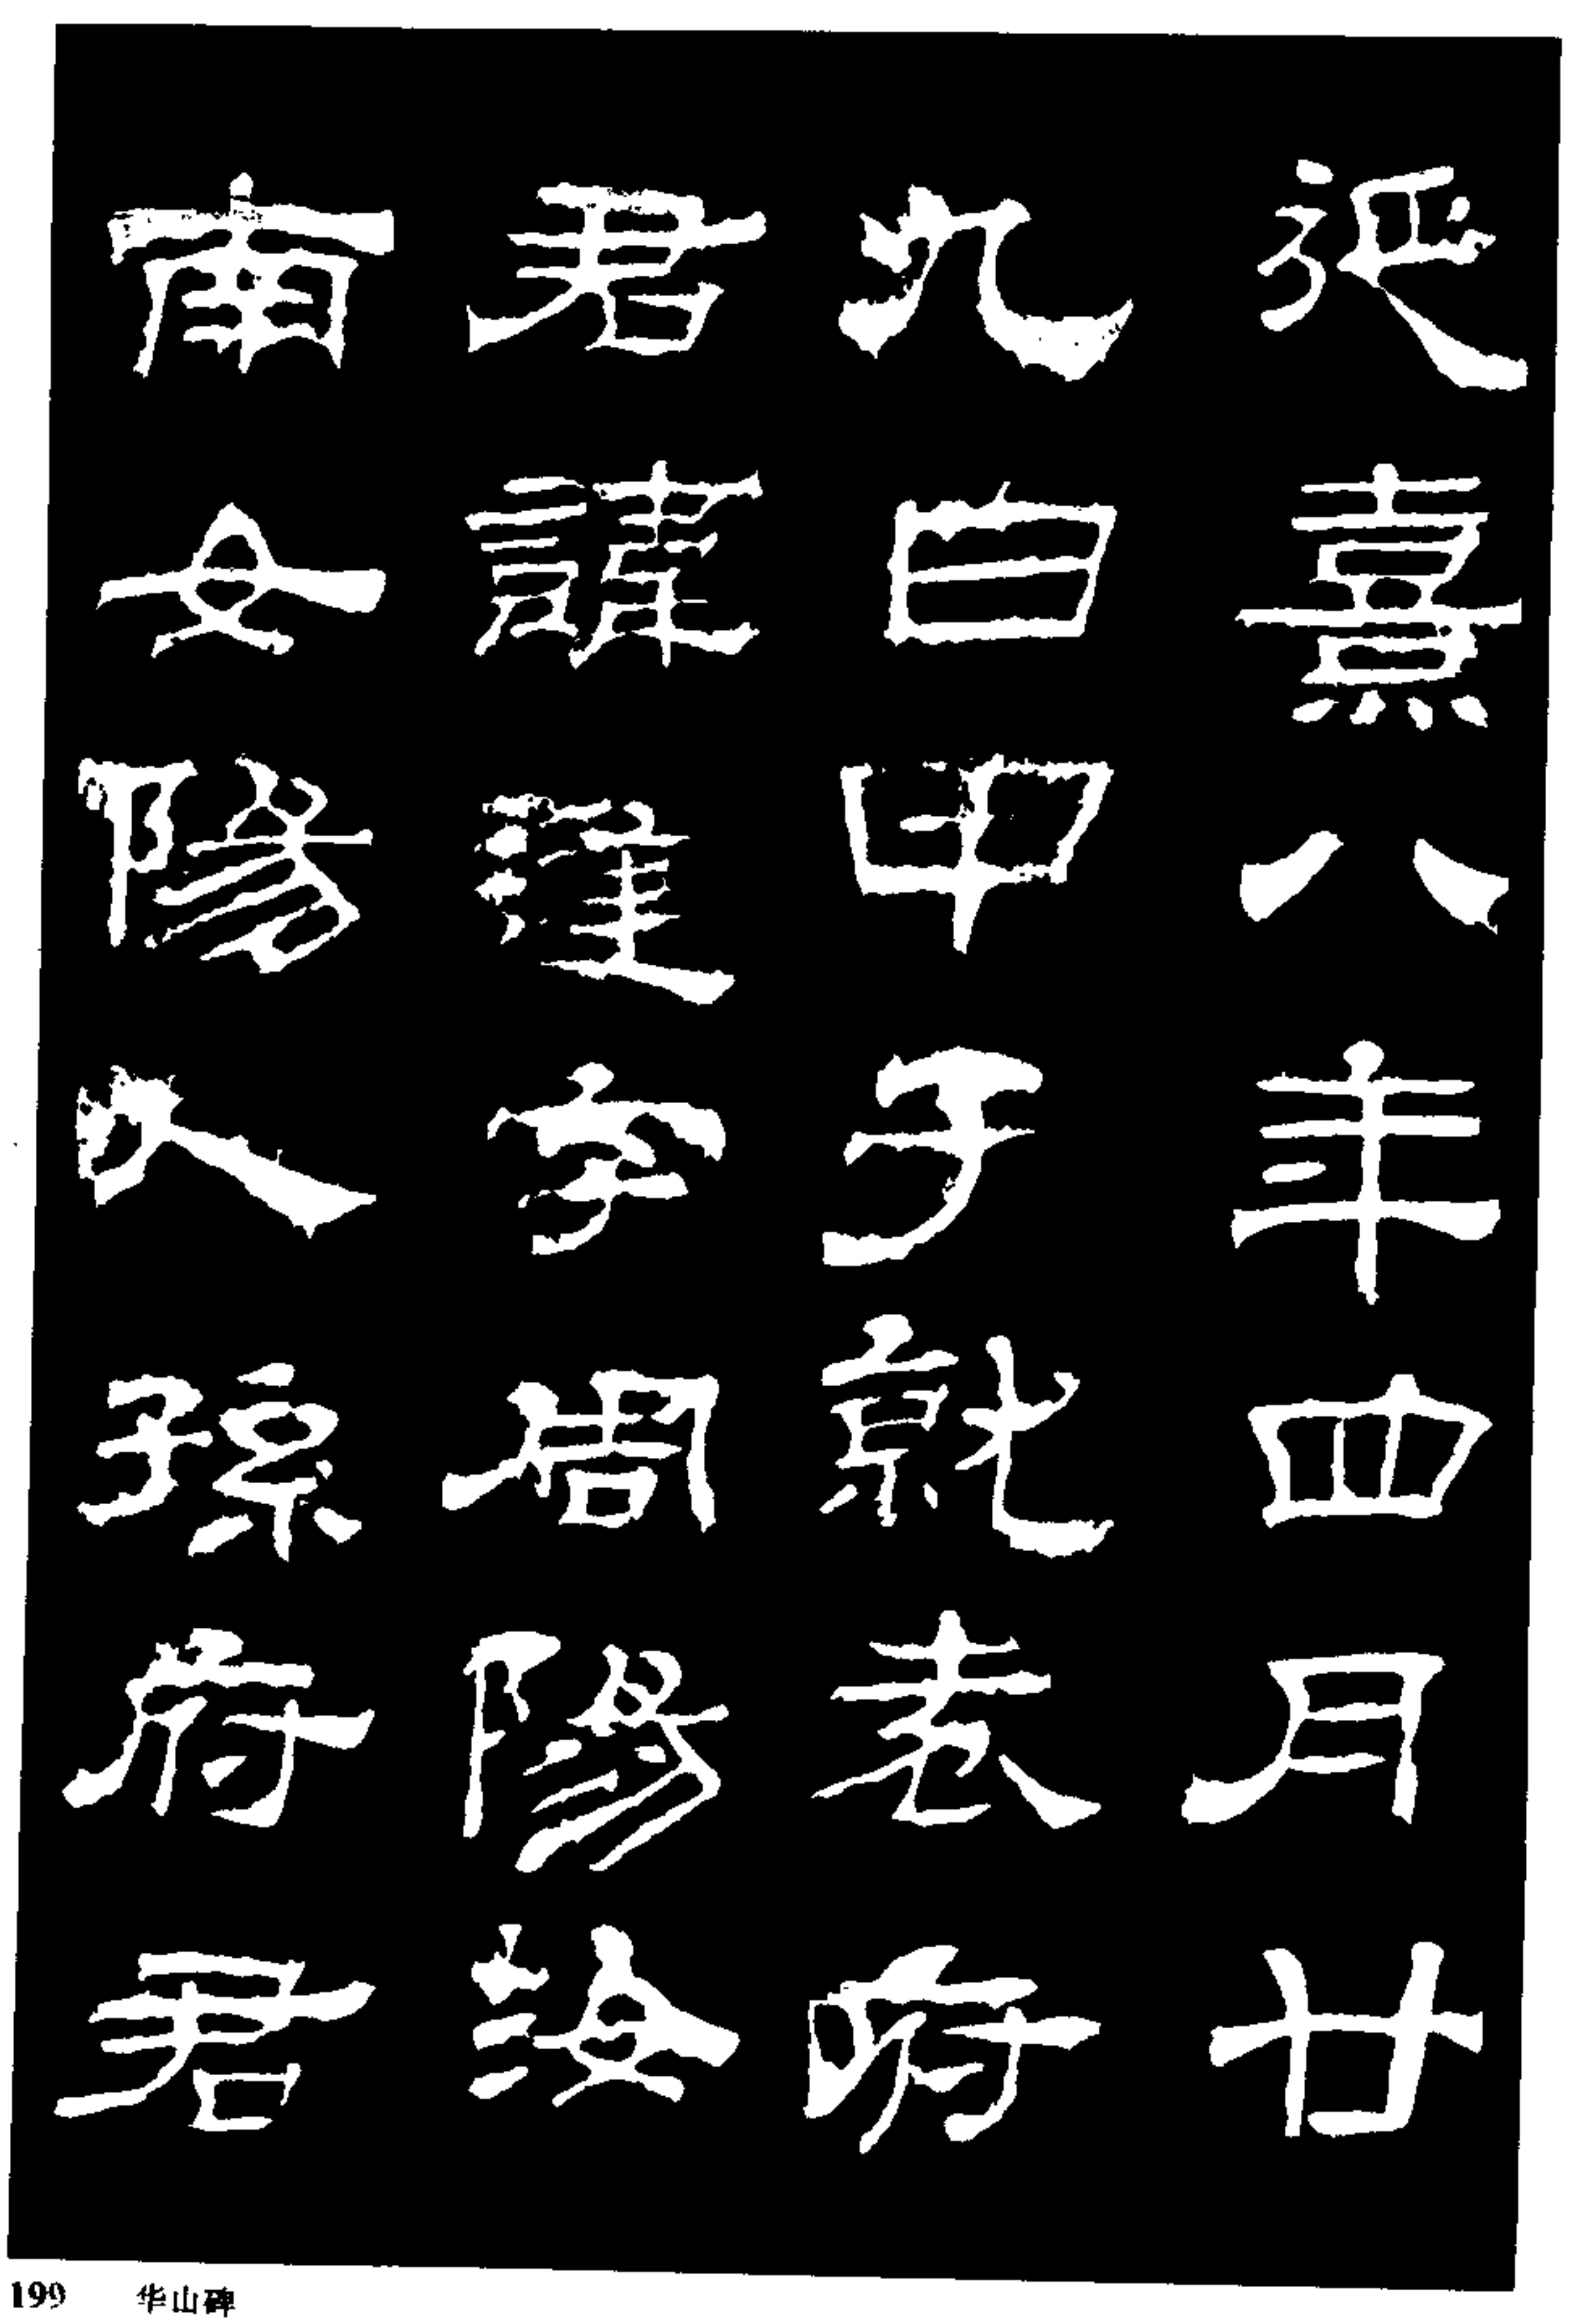 延熹八年四月廿
九日甲子就袁府
君諱逢字周陽汝
南女陽人孫府君
199 华山碑